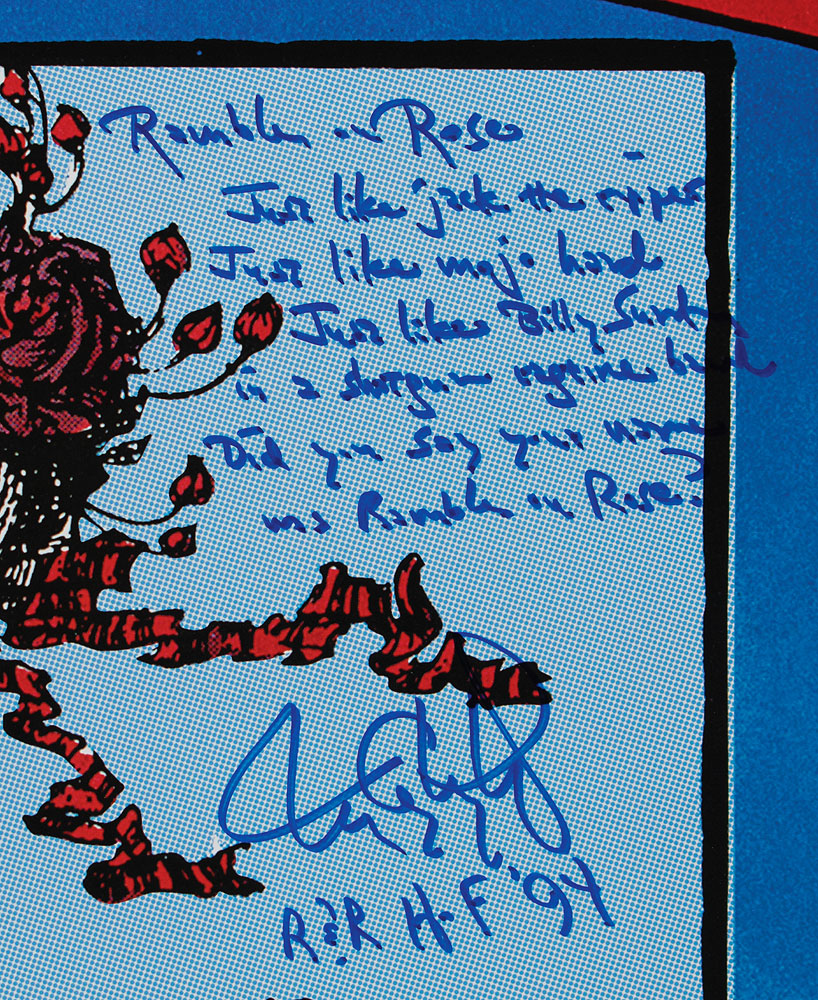 Ramblin on Rose
Just like jack the ripper
Just like mojo hand
Just like Billy Sunday
in a shotgun ragtime band
Did you say your name
was Ramblin on Rose?
R&R H-F '94